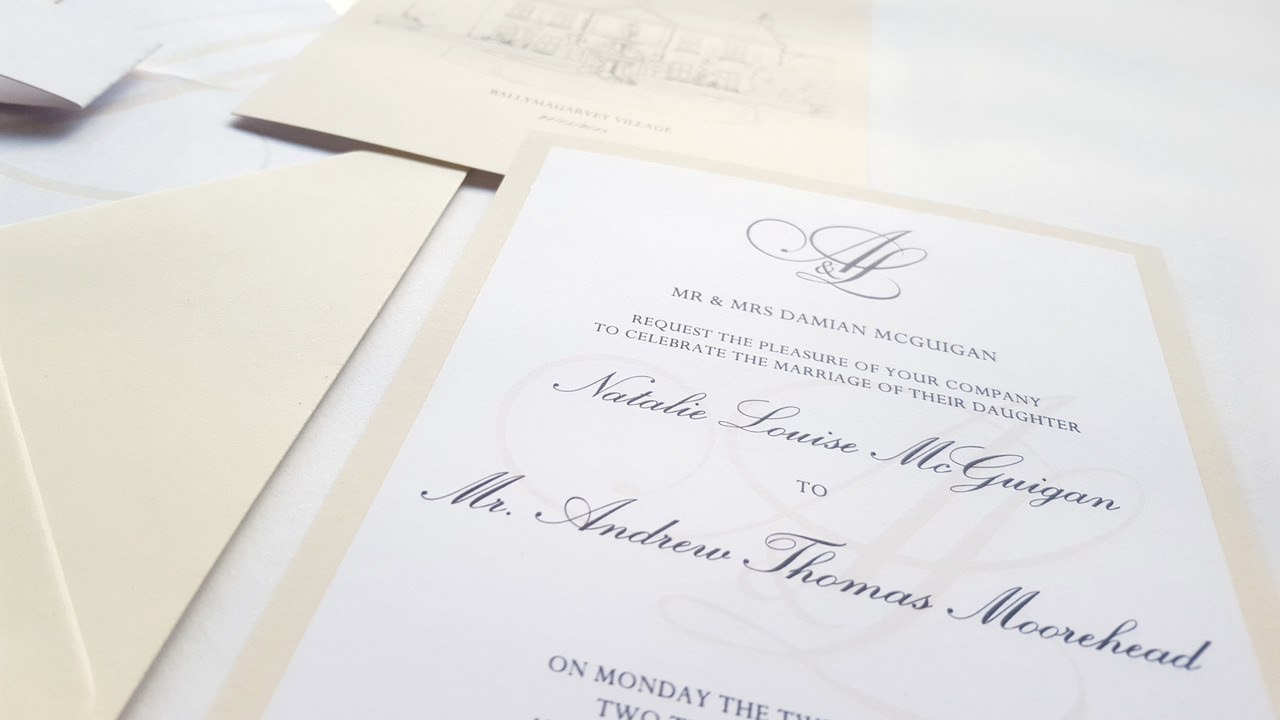 BALLYMAGARVEY VILLAGE
A
&
MR & MRS DAMIAN MCGUIGAN
REQUEST THE PLEASURE OF YOUR COMPANY
TO CELEBRATE THE MARRIAGE OF THEIR DAUGHTER
Natalie Louise McGuigan
TO
Mr. Andrew Thomas Moorehead
ON MONDAY THE
TWO